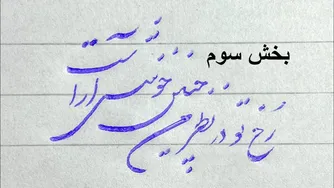 بخش سوم
رخ تو در نظر من چنین خوشش آراست